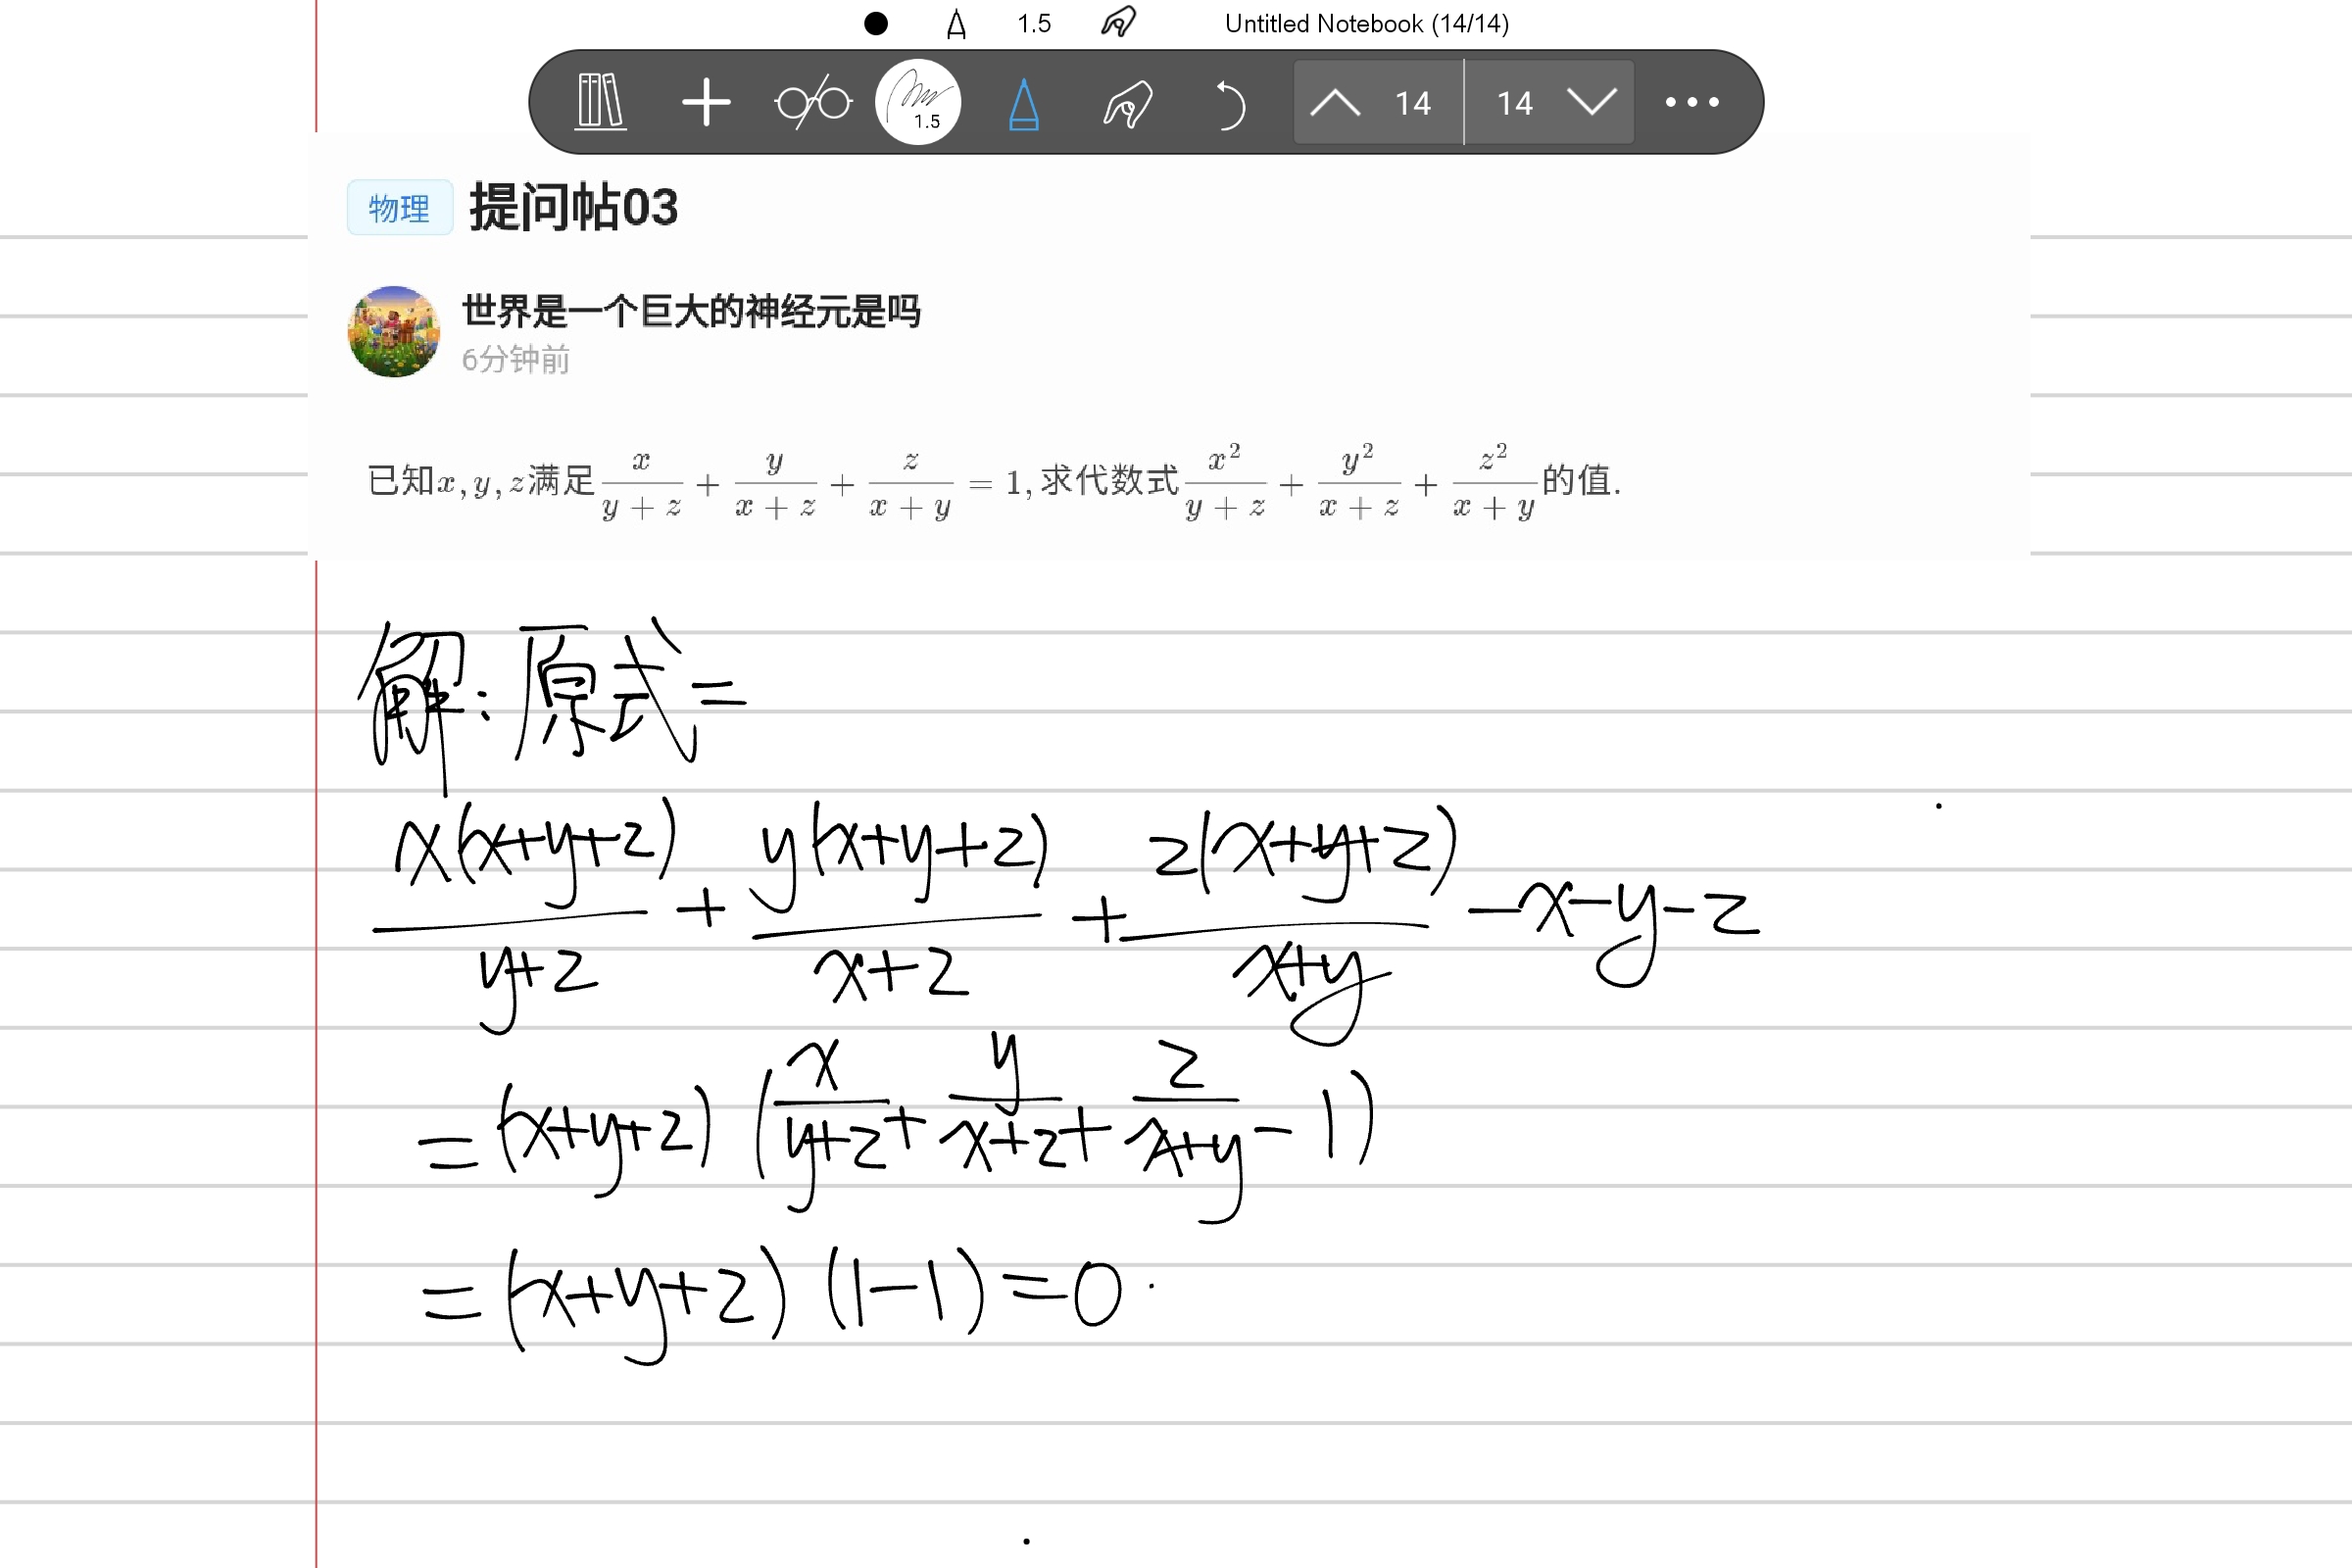 1.5 Untitled Notebook (14/14)
1.5 14 14
物理 提问帖03
世界是一个巨大的神经元是吗
6分钟前
已知x, y, z满足 x/(y + z) + y/(x + z) + z/(x + y) = 1, 求代数式 x²/(y + z) + y²/(x + z) + z²/(x + y) 的值.
解:原式=
x(x+y+z)/(y+z) + y(x+y+z)/(x+z) + z(x+y+z)/(x+y) -x-y-z
=(x+y+z) (x/(y+z) + y/(x+z) + z/(x+y) - 1)
=(x+y+z) (1-1)=0.